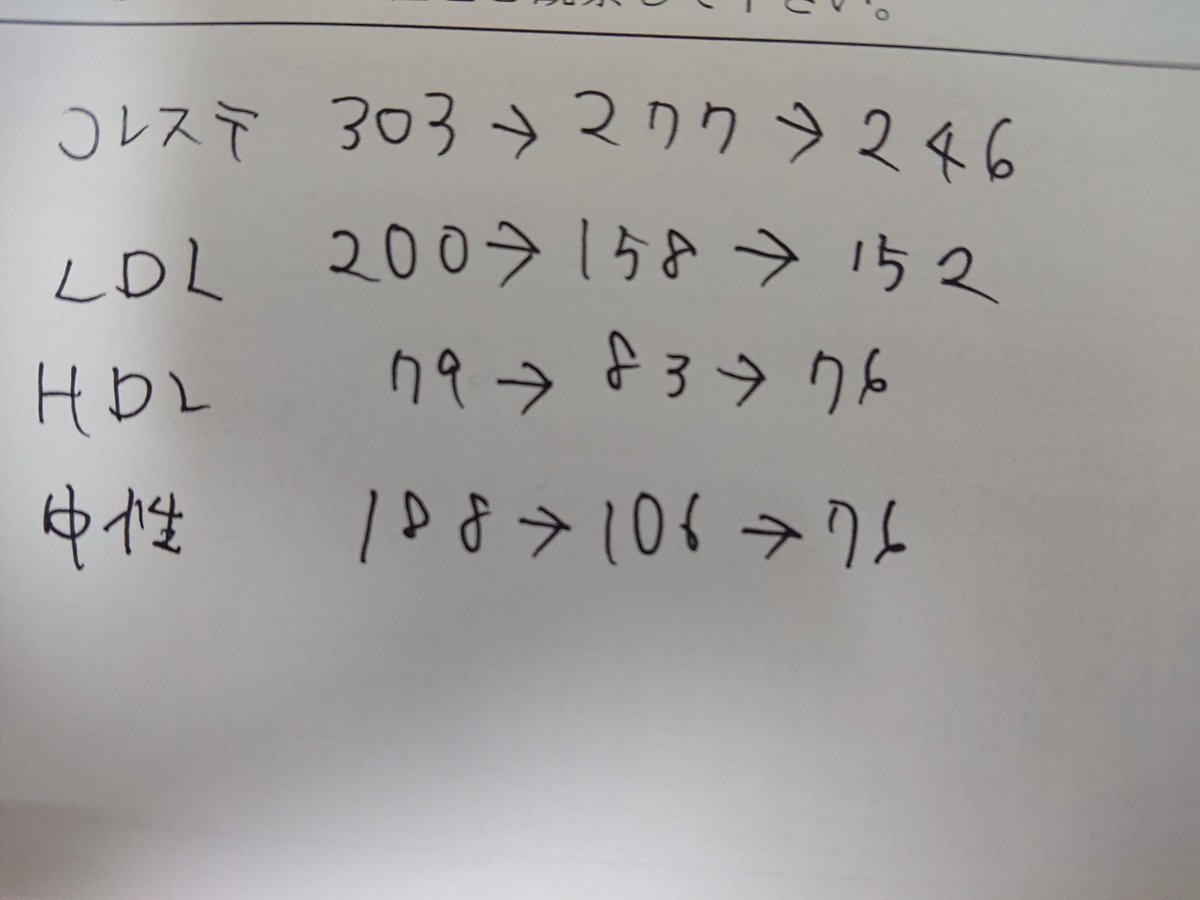 して下さい。
コレステ 303→277→246
LDL 200→158→152
HDL 79→83→76
中性 188→106→76